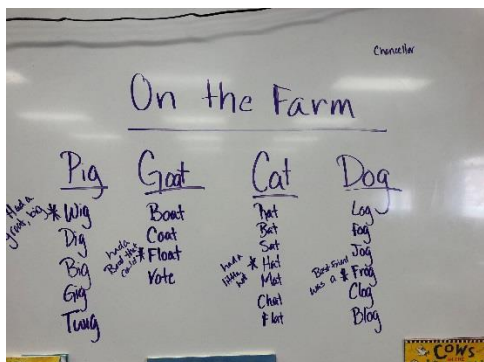 Chancellor
On the Farm
Pig
Had a great, big * Wig
Dig
Big
Gig
Twig
Goat
Boat
Coat
had a Boat that could * Float
Vote
Cat
Rat
Bat
Sat
had a little hat * Hat
Mat
Chat
Flat
Dog
Log
Fog
Jog
Best Friend was a * Frog
Clog
Blog
COWS